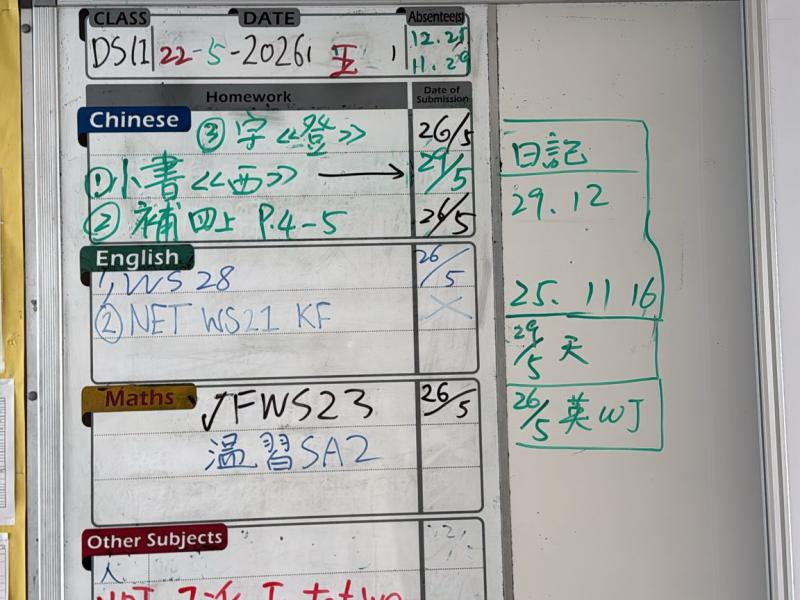 CLASS DATE Absentee(s)
22-5-2026 五 12. 25
11. 29
Homework Date of Submission
Chinese
③ 字《登》 26/5
①小書《西》 → 29/5
② 補四上 P.4-5 26/5
English
1, WS 28 26/5
② NET WS21 KF ×
Maths
✓FWS23 26/5
温習SA2
Other Subjects
日記
29. 12
25. 11 16
29/5 天
26/5 英WJ